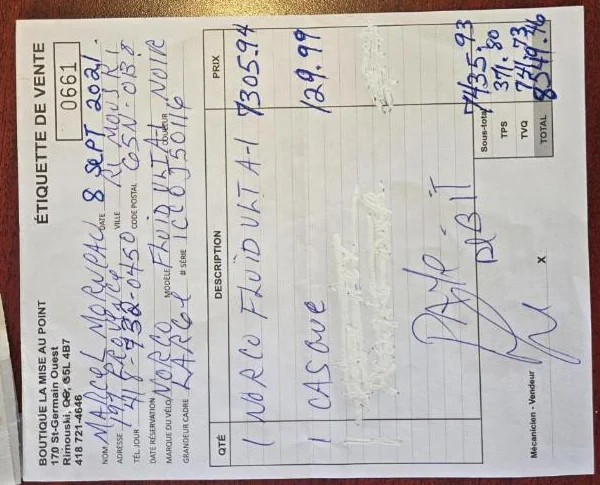 BOUTIQUE LA MISE AU POINT
170 St-Germain Ouest
Rimouski, QC, G5L 4B7
418 721-4646
ÉTIQUETTE DE VENTE
0661
NOM MARCEL DATE 8 SEPT 2021
ADRESSE VILLE RIMOUSKI
TÉL. JOUR 418-732-0450 CODE POSTAL G5N-0B8
DATE RÉSERVATION
MARQUE DU VÉLO NORCO MODÈLE FLUID ULT A-1 COULEUR NOIR
GRANDEUR CADRE LARGE # SÉRIE
QTÉ DESCRIPTION PRIX
1 NORCO FLUID ULT A-1 7305.94
1 CASQUE 129.99
PAYÉ
DEBIT
Sous-total 7435.93
TPS
TVQ
TOTAL 8549.46
Mécanicien - Vendeur X